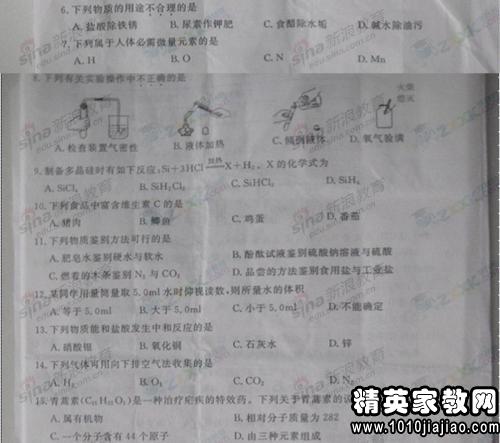 6.下列物质的用途不合理的是
A.盐酸除铁锈 B.尿素作钾肥 C.食醋除水垢 D.碱水除油污
7.下列属于人体必需微量元素的是
A.H B.O C.N D.Mn
8.下列有关实验操作中不正确的是
火柴
熄灭
A.检查装置气密性 B.液体加热 C.倾倒液体 D.氧气验满
9.制备多晶硅时有如下反应:Si+3HCl 加热 X+H₂。X的化学式为
A.SiCl₄ B.SiH₂Cl₂ C.SiHCl₃ D.SiH₄
10.下列食品中富含维生素C的是
A.猪肉 B.鲫鱼 C.鸡蛋 D.番茄
11.下列物质鉴别方法可行的是
A.肥皂水鉴别硬水与软水 B.酚酞试液鉴别硫酸钠溶液与硫酸
C.燃着的木条鉴别N₂与CO₂ D.品尝的方法鉴别食用盐与工业盐
12.某同学用量筒量取5.0ml水时仰视读数,则所量水的体积
A.等于5.0ml B.大于5.0ml C.小于5.0ml D.不能确定
13.下列物质能和盐酸发生中和反应的是
A.硝酸银 B.氧化铜 C.石灰水 D.锌
14.下列气体可用向下排空气法收集的是
A.H₂ B.O₂ C.CO₂ D.N₂
15.青蒿素(C₁₅H₂₂O₅)是一种治疗疟疾的特效药。下列关于青蒿素的
A.属有机物 B.相对分子质量为282
C.一个分子含有44个原子 D.由三种元素组成
sina新浪教育
精英家教网
www.1010jiajiao.com